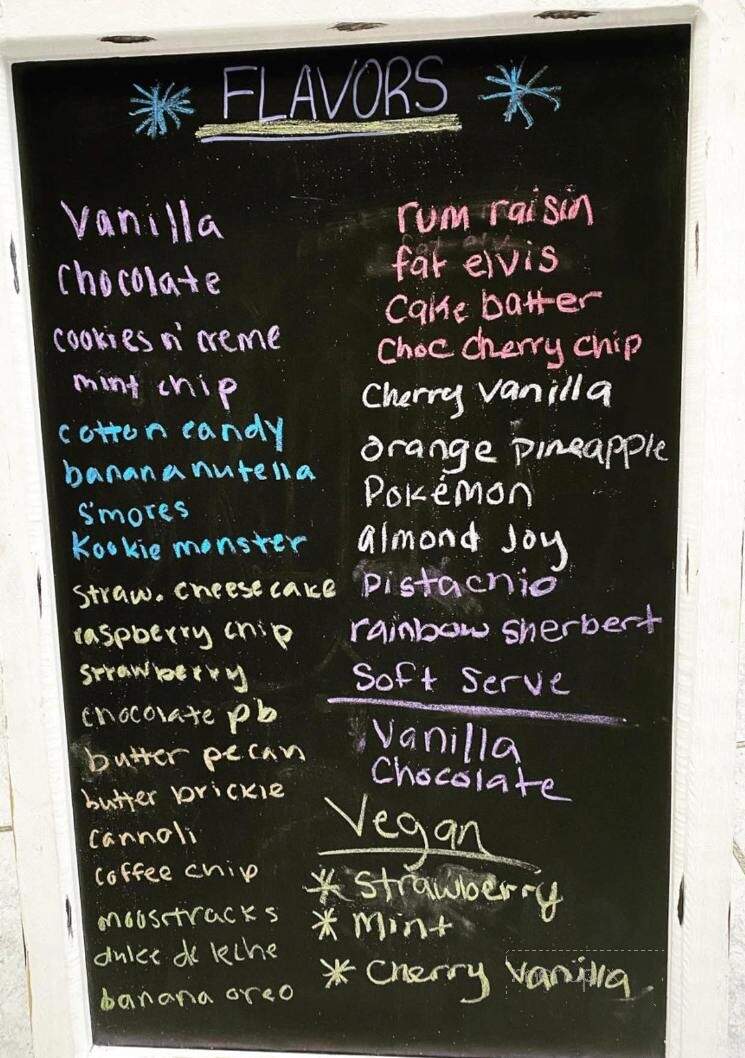 FLAVORS
Vanilla
Chocolate
cookies n' creme
mint chip
cotton candy
banana nutella
S'mores
Kookie monster
straw. cheesecake
raspberry chip
strawberry
chocolate pb
butter pecan
butter brickle
cannoli
coffee chip
moosetracks
dulce de leche
banana oreo
rum raisin
fat elvis
Cake batter
Choc cherry chip
Cherry vanilla
orange pineapple
Pokémon
almond Joy
pistachio
rainbow sherbert
Soft Serve
Vanilla
Chocolate
Vegan
* Strawberry
* Mint
* Cherry Vanilla